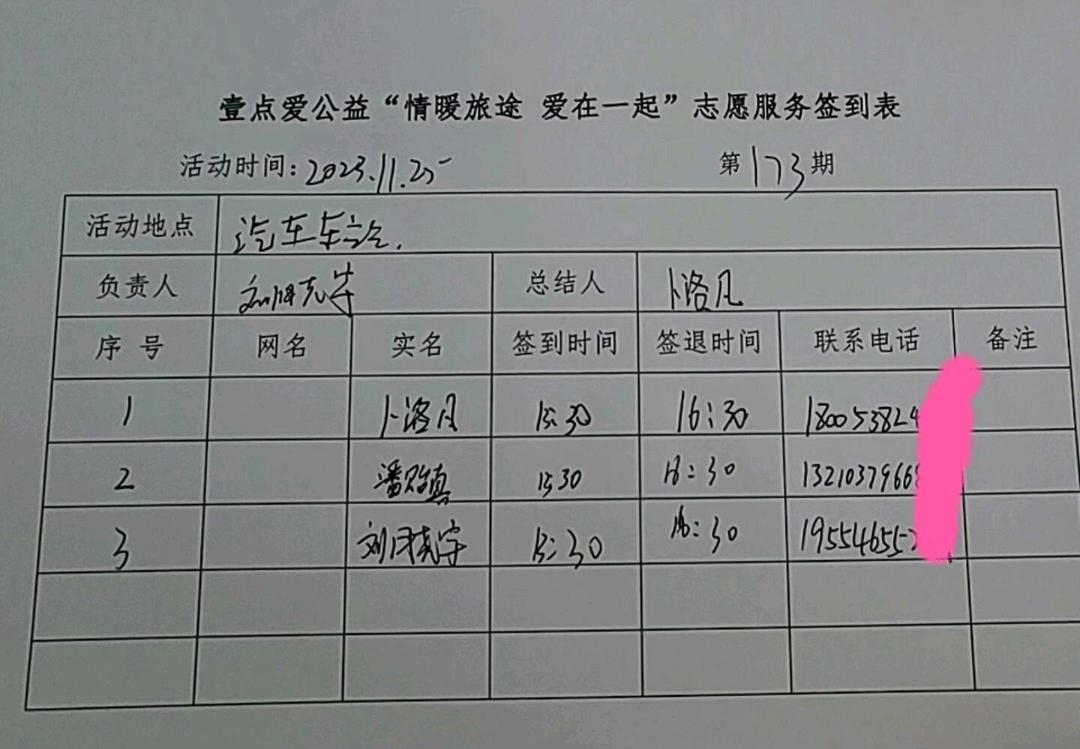 壹点爱公益“情暖旅途 爱在一起”志愿服务签到表
活动时间:2023.11.25 第173期
活动地点 汽车车站.
负责人 总结人 卜洛凡
序号 网名 实名 签到时间 签退时间 联系电话 备注
1 卜洛凡 15:30 16:30 180053824
2 潘 真 15:30 16:30 1321037966
3 刘 15:30 16:30 195546552